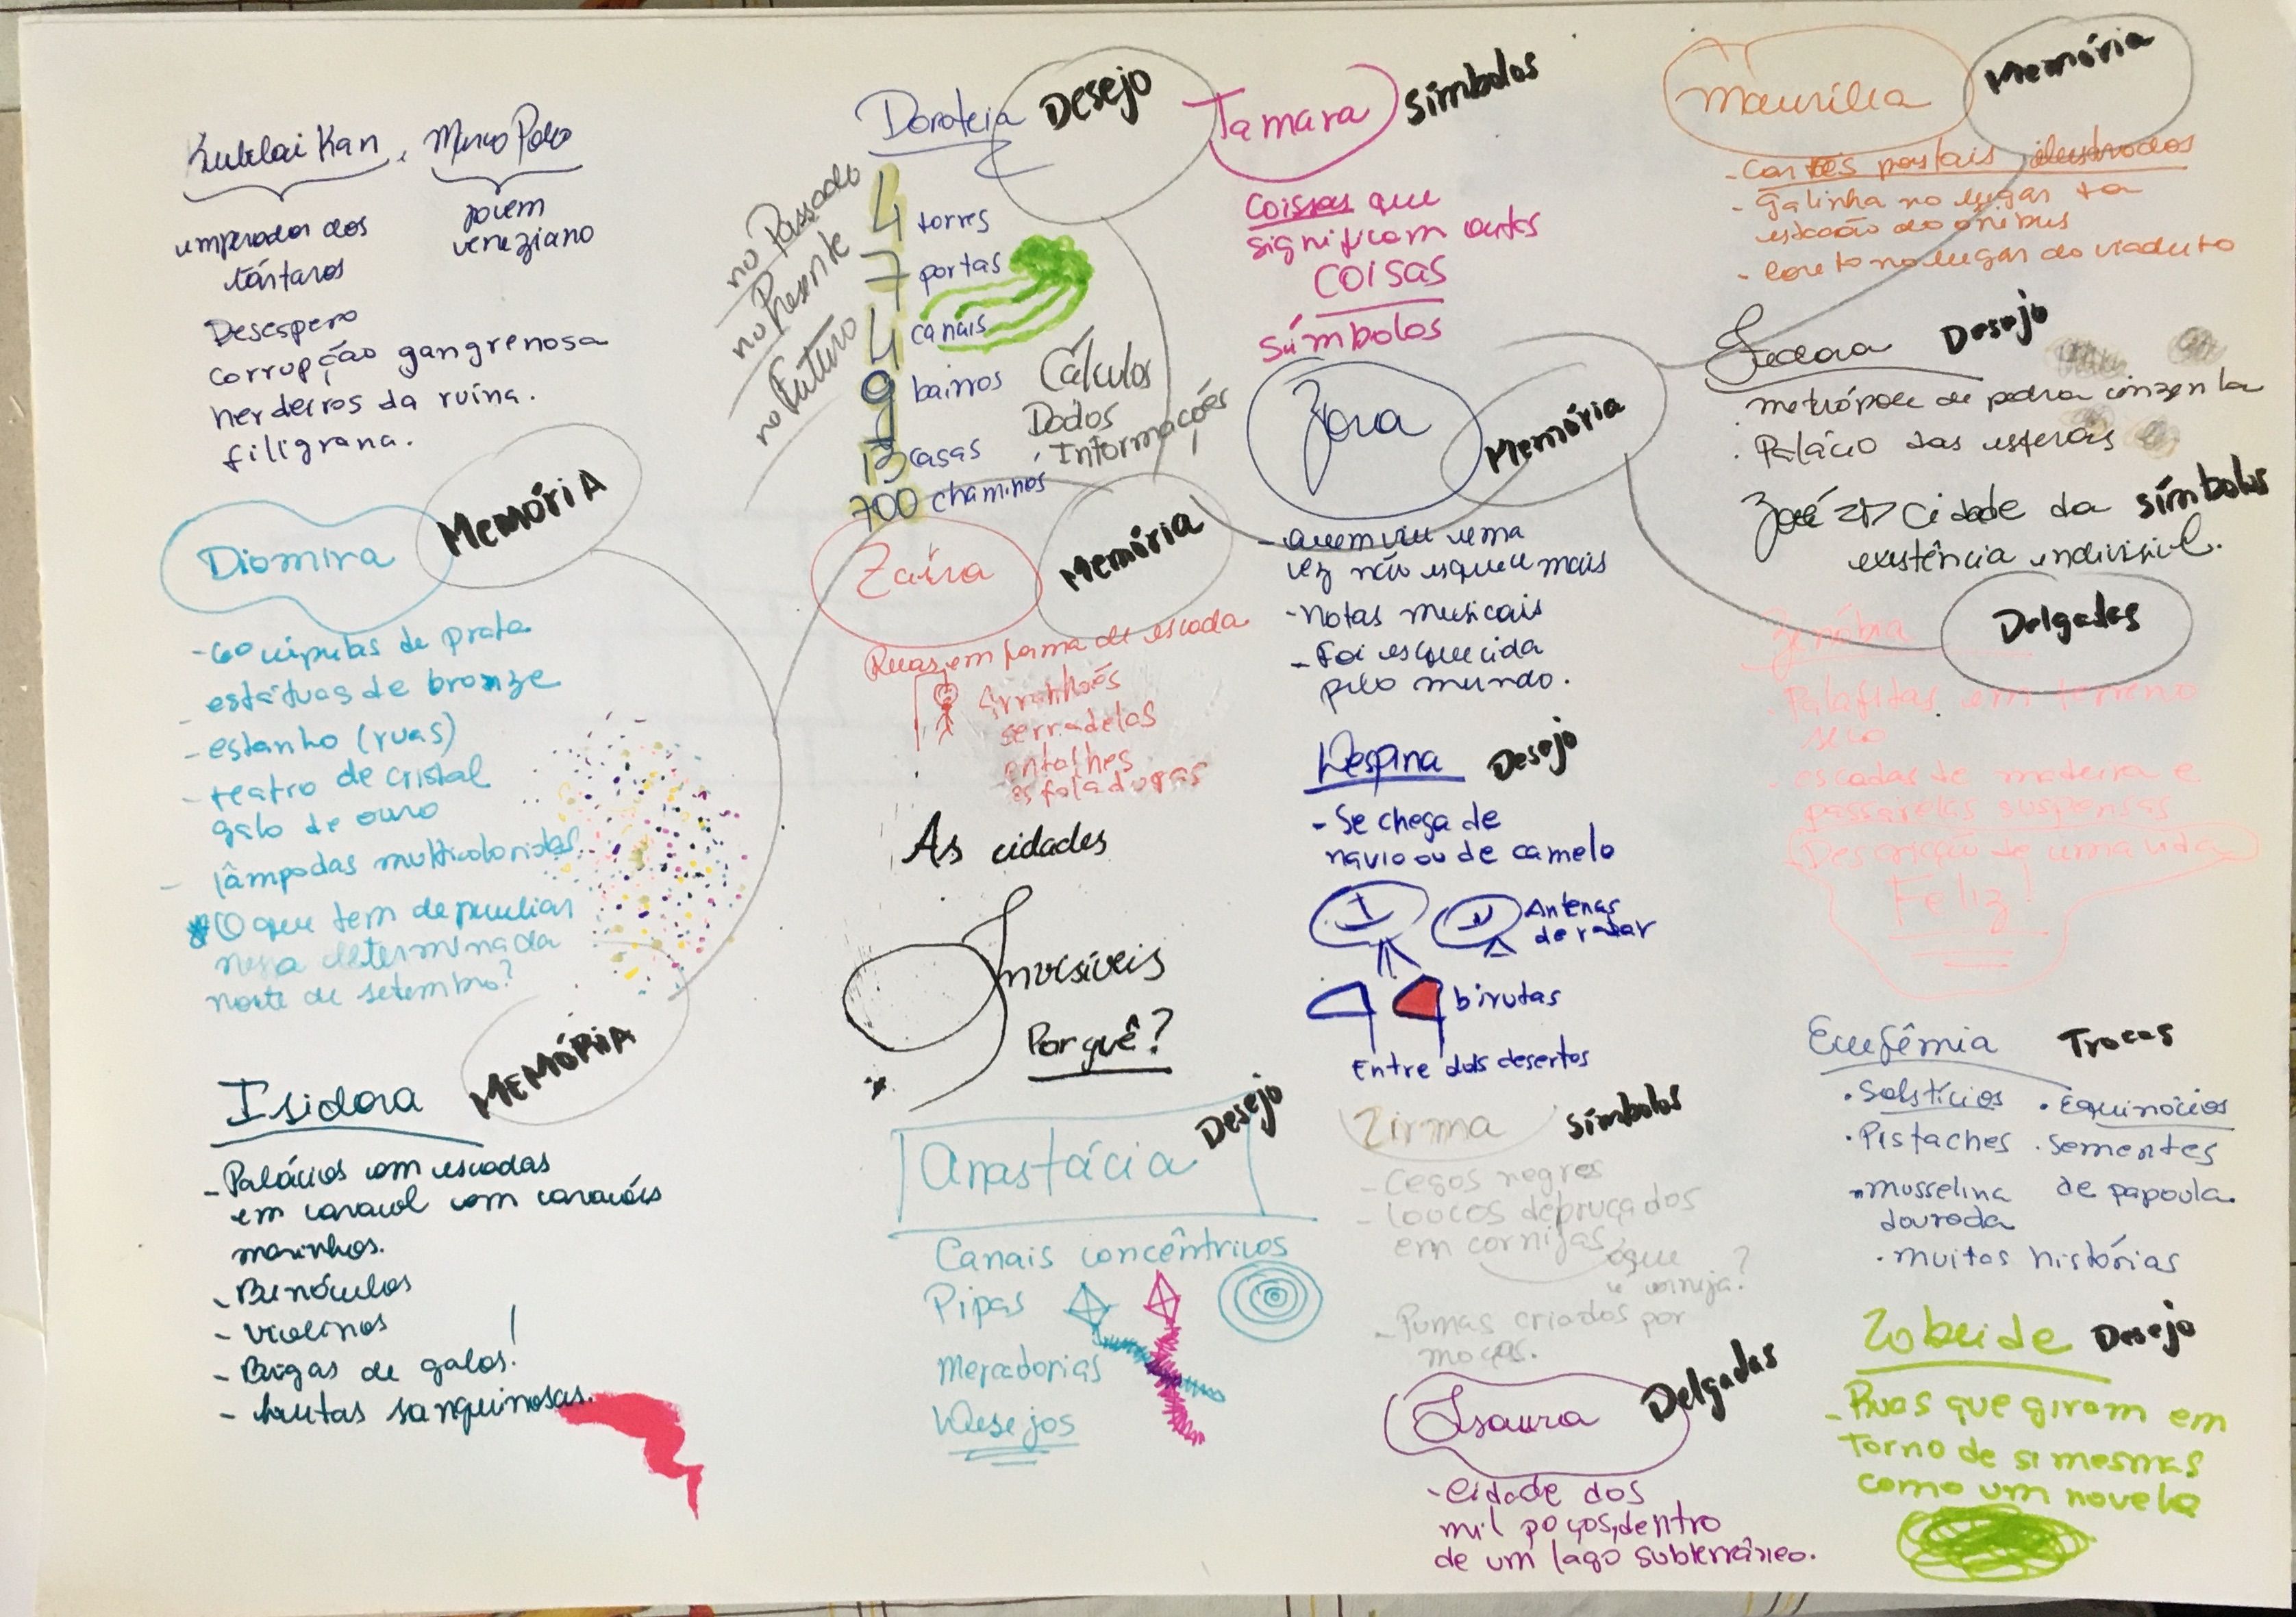 Kublai Kan, Marco Polo
imperador dos
tártaros
jovem
veneziano
Desespero
corrupção gangrenosa
herdeiros da ruína.
filigrana.
Diomira Memória
- 60 cúpulas de prata
- estátuas de bronze
- estanho (ruas)
- teatro de cristal
galo de ouro
- lâmpadas multicoloridas
* O que tem de peculiar
nessa determinada
noite de setembro?
Isidora Memória
- Palácios com escadas
em caracol com caracóis
marinhos.
- Binóculos
- violinos
- Brigas de galos!
- lutas sanguinosas.
Doroteia Desejo
no Passado
no Presente
no Futuro
4 torres
7 portas
4 canais
9 bairros
13 casas
700 chaminés
Cálculos
Dados
Informações
Zaíra Memória
Ruas em forma de escada
Arranhões
serradelas
entalhes
esfoladuras
As cidades
Invisíveis
Por quê?
Anastácia Desejo
Canais concêntricos
Pipas
Mercadorias
Desejos
Tamara Símbolos
Coisas que
significam outras
coisas
Símbolos
Zora Memória
- Quem viu uma
vez não esquece mais
- Notas musicais
- Foi esquecida
pelo mundo.
Despina Desejo
- Se chega de
navio ou de camelo
Antenas
de radar
birutas
Entre dois desertos
Zirma Símbolos
- Cegos negros
- Loucos debruçados
em cornijas
o que
é cornija?
- Pumas criados por
moças.
Isaura Delgadas
- Cidade dos
mil poços, dentro
de um lago subterrâneo.
Maurília Memória
- Cartões postais ilustrados
- galinha no lugar da
estação do ônibus
- Coreto no lugar do viaduto
Fedora Desejo
. metrópole de pedra cinzenta
. Palácio das esferas
Zoé Cidade da símbolos
existência indivisível.
Zenóbia Delgadas
. Palafitas em terreno
seco
. escadas de madeira e
passarelas suspensas
Descrição de uma vida
Feliz!
Eufêmia Trocas
. Solstícios . Equinócios
. Pistaches . sementes
de papoula.
. musselina
dourada
. muitas histórias
Zobeide Desejo
- Ruas que giram em
torno de si mesmas
como um novelo